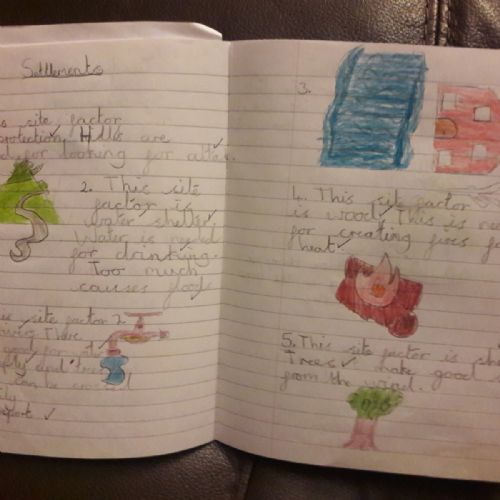 Settlements
s site factor
protection Hills are
for looking for attac
2. This site
factor is
water shelter
Water is needed
for drinking.
Too much
causes flood
site factor 2
good for
and trees
can be crossed
3.
4. This site factor
is wood. This is nee
for creating fires fo
heat
5. This site factor is she
Trees make good
from the wind.